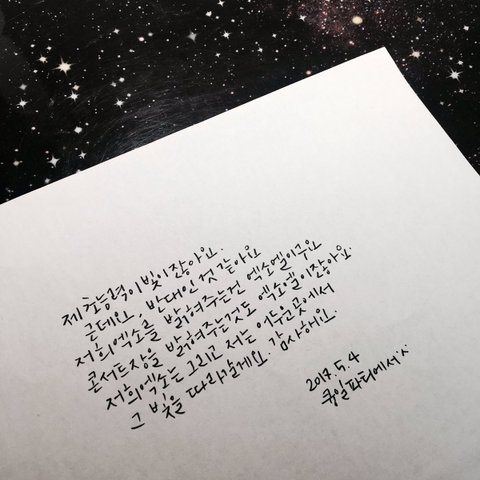 제 초능력이 빛이잖아요.
근데요, 반대인 것 같아요
저희 엑소를 밝혀주는건 엑소엘이구요
콘서트장을 밝혀주는것도 엑소엘이잖아요.
저희 엑소는 그리고 저는 어두운곳에서
그 빛을 따라갈게요. 감사해요.
2017. 5. 4
큥일파티에서 '^'